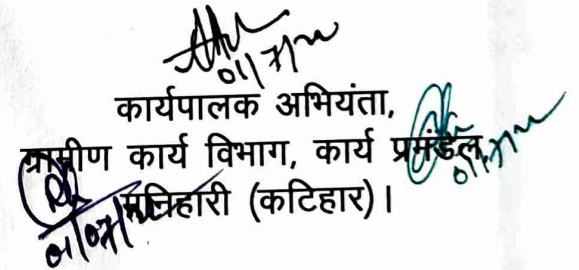 01/7/22
कार्यपालक अभियंता,
ग्रामीण कार्य विभाग, कार्य प्रमंडल,
मनिहारी (कटिहार)।